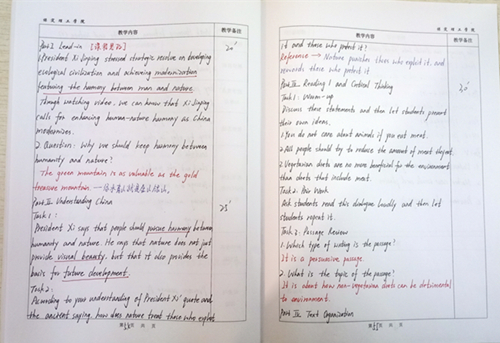 教学内容 教学备注
Part I Lead-in [课程思政] 20'
1. President Xi Jinping stressed strategic resolve on developing
ecological civilization and achieving modernization
featuring the harmony between man and nature.
Through watching video, we can know that Xi Jinping
calls for enhancing human-nature harmony as China
modernizes.
2. Question: Why we should keep harmony between
humanity and nature?
The green mountain is as valuable as the gold
treasure mountain
Part II Understanding China 25'
Task 1:
President Xi says that people should pursue harmony between
humanity and nature. He says that nature does not just
provide visual beauty, but that it also provides the
basis for future development.
Task 2:
According to your understanding of President Xi' quote and
the ancient saying, how does nature treat those who exploit
教学内容 教学备注
it and those who protect it?
Reference → Nature punishes those who exploit it and
rewards those who protect it
Part III Reading 1 and Critical Thinking
Task 1: Warm-up
Discuss these statements and then let students present
their own ideas.
1. You do not care about animals if you eat meat.
2. All people should try to reduce the amount of meat they eat.
3. Vegetarian diets are no more beneficial for the environment
than diets that include meat.
Task 2: Pair Work
Ask students read this dialogue loudly and then let
students repeat it.
Task 3: Passage Review
1. Which type of writing is the passage?
It is a persuasive passage.
2. What is the topic of the passage?
It is about how non-vegetarian diets can be detrimental
to environment.
Text Organization